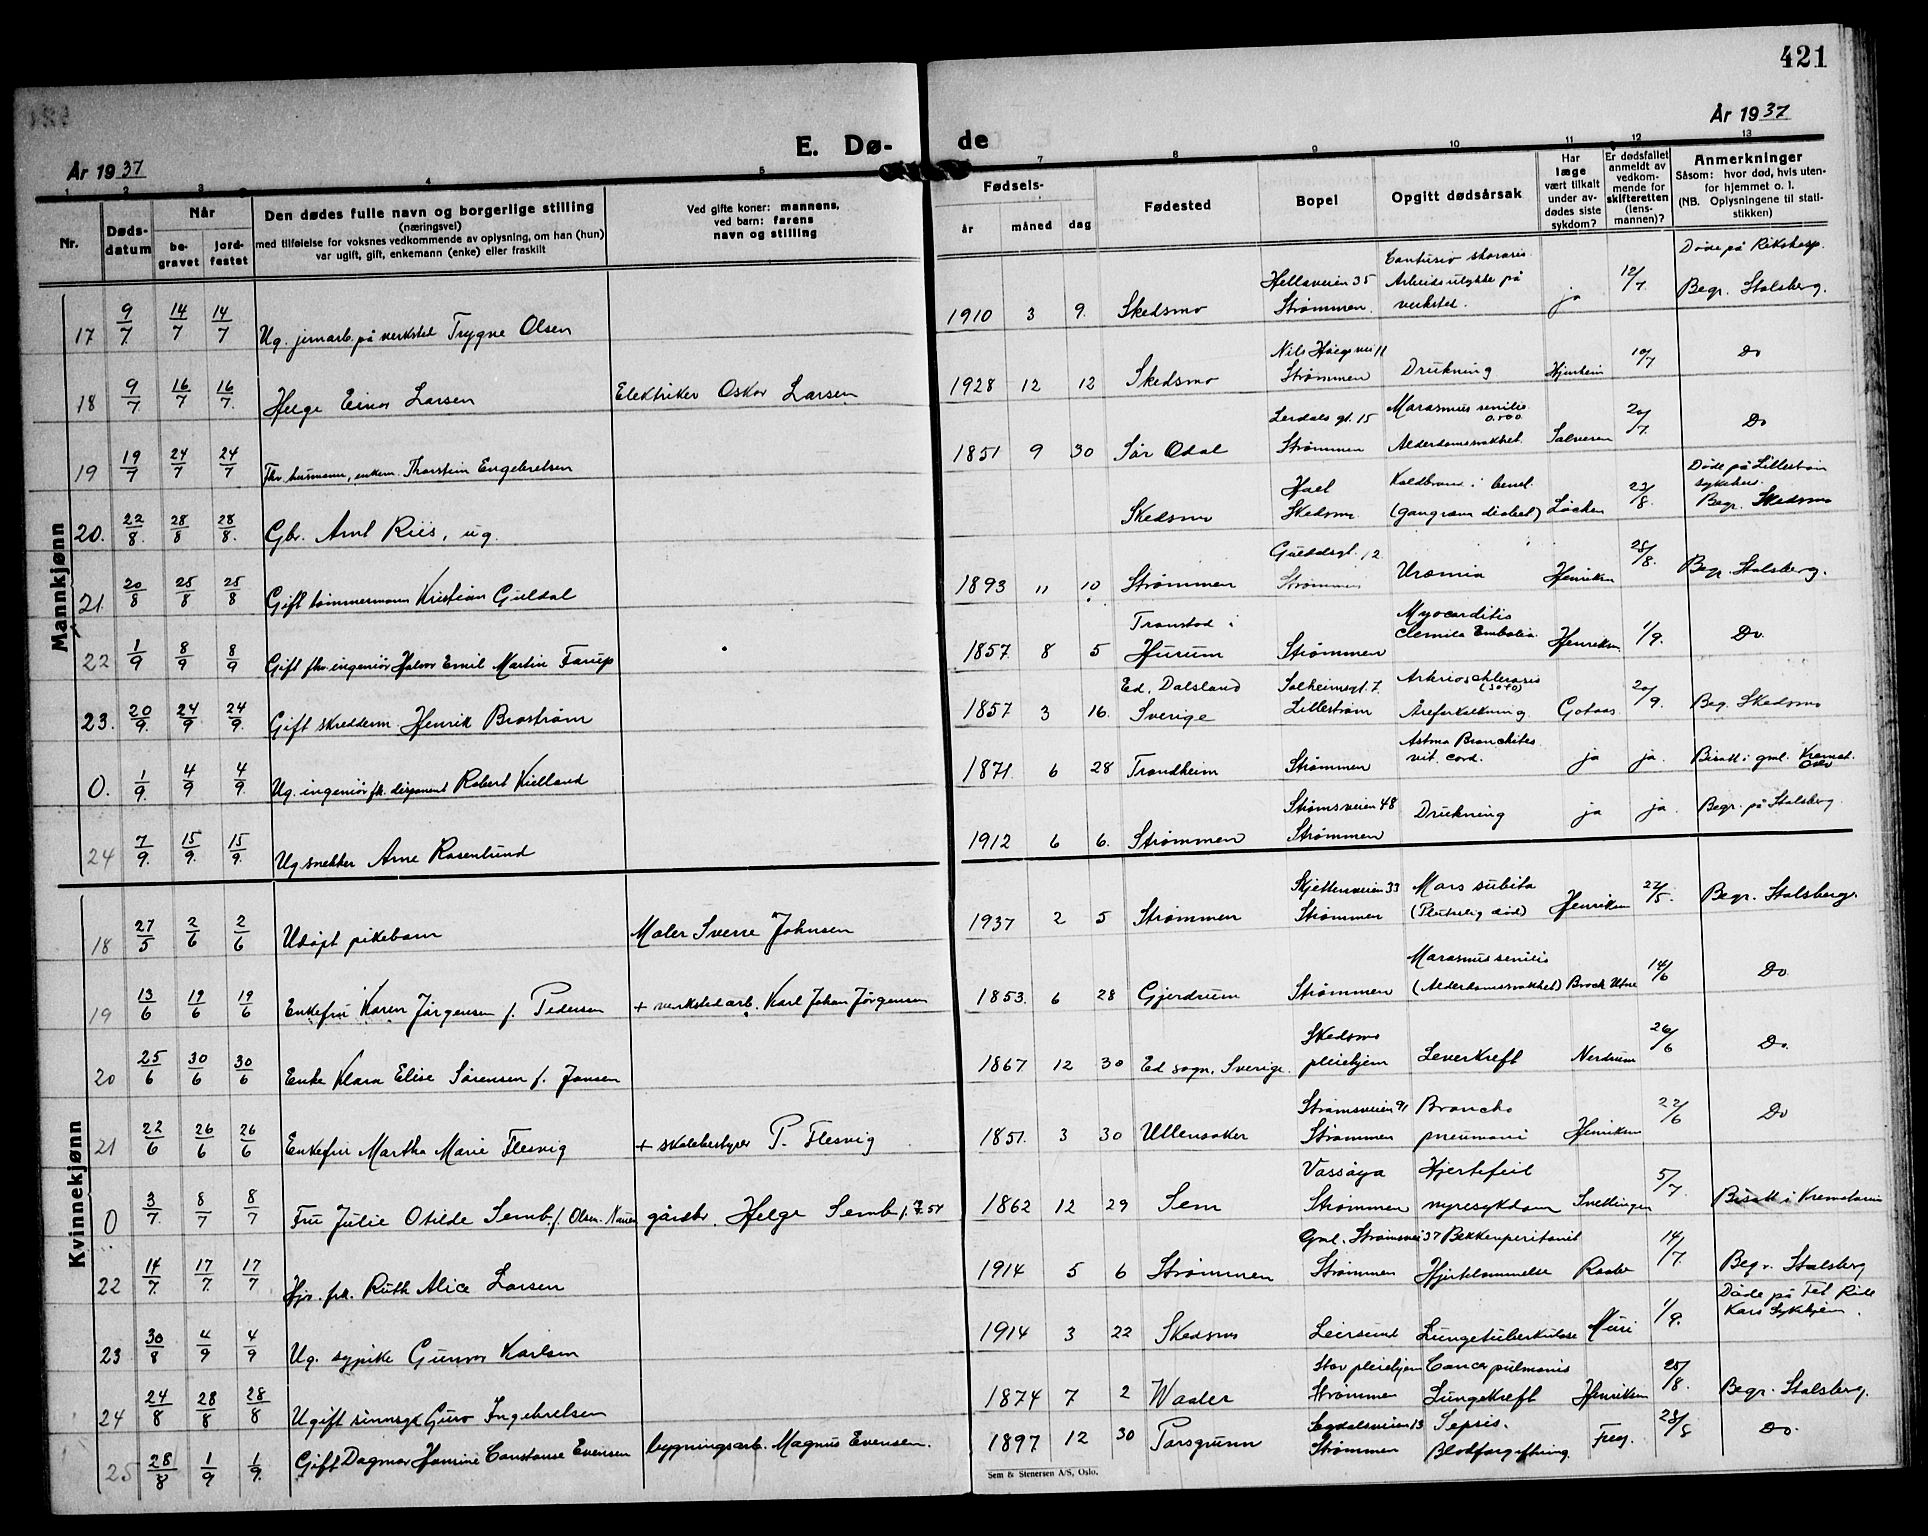 421
År 1937
År 1937
E. Dø-
de
1 2 3 4 5
7 8 9 10 11 12 13
Nr.
Døds-
datum
Når
be-
gravet
jord-
festet
Den dødes fulle navn og borgerlige stilling
(næringsvei)
med tilføielse for voksnes vedkommende av oplysning, om han (hun)
var ugift, gift, enkemann (enke) eller fraskilt
Ved gifte koner: mannens,
ved barn: farens
navn og stilling
Fødsels-
år måned dag
Fødested
Bopel
Opgitt dødsårsak
Har
læge
vært tilkalt
under av-
dødes siste
sykdom?
Er dødsfallet
anmeldt av
vedkom-
mende for
skifteretten
(lens-
mannen)?
Anmerkninger
Såsom: hvor død, hvis uten-
for hjemmet o. l.
(NB. Oplysningene til stati-
stikken)
Mannkjønn
17 9/7 14/7 14/7 Ug. jernarb. på verksted Trygve Olsen 1910 3 9. Skedsmo Hellaveien 35 Strømmen. Arbeidsulykke på verksted. ja 12/7 Døde på Rikshosp. Begr. Stalsberg.
18 9/7 16/7 16/7. Helge Einar Larsen Elektriker Oskar Larsen 1928 12 12 Skedsmo Nils Høegs vei 11 Strømmen Drukning Hjemheim 10/7 Do
19 19/7 24/7 24/7 Fhv. husmann, enkem. Thorstein Engebretsen 1851 9 30 Sør Odal Lerdals gt. 15 Strømmen Marasmus senilis Alderdomssvakhet. Salvesen 20/7. Do
20. 22/8. 28/8 28/8. Gbr. Arnt Riis, ug. Skedsmo Hael Skedsm. Koldbrann i benet. (gangræn diabet) Løchen 23/8. Døde på Lillestrøm sykehus. Begr. Skedsmo
21 20/8 25/8 25/8 Gift tømmermann Kristian Guldal 1893 11 10 Strømmen Guldalsgt. 12 Strømmen Uræmia Henriksen 25/8. Begr. Stalsberg.
22 1/9 8/9 8/9 Gift fhv. ingeniør Halvor Emil Martin Farup 1857 8 5 Tronstad i Hurum Strømmen Myocarditis Embolia Henriksen 1/9. Do.
23. 20/9. 24/9. 24/9. Gift skredderm. Henrik Broström 1857 3 16. Ed, Dalsland Sverige Solheimsgt. 7. Lillestrøm Arteriosklerosis Åreforkalkning Gotaas 20/9. Beg. Skedsmo
0. 1/9. 4/9 4/9 Ug. ingeniør fh. disponent Robert Kielland 1871. 6 28 Trondheim Strømmen Astma Bronchites vit. cord. ja ja. Bisatt i gml. Kremat. Oslo
24 7/9. 15/9. 15/9. Ug. snekker Arne Rosenlund 1912 6 6. Strømmen Strømsveien 48 Strømmen Drukning ja ja. Begr. på Stalsberg
Kvinnekjønn
18 27/5 2/6 2/6 Udøpt pikebarn Maler Sverre Johnsen 1937 2 5 Strømmen Skjettenveien 33 Strømmen Mors subita (Plutselig død) Henriksen 27/5. Begr. Stalsberg.
19 13/6 19/6 19/6 Enkefru Karen Jørgensen f. Pedersen + verkstedarb. Karl Johan Jørgensen 1853. 6 28 Gjerdrum Strømmen Marasmus senilis (Alderdomssvakhet) Brock Utne 14/6 Do.
20 25/6 30/6 30/6 Enke Klara Elise Sørensen f. Jonsen 1867 12 30 Ed sogn, Sverige. Skedsmo pleiehjem Leverkreft Nerdrum 26/6 Do.
21 22/6 26/6 26/6 Enkefru Martha Marie Flesvig + skolebestyrer P. Flesvig 1851. 3 30 Ullensaker Strømsveien 91 Strømmen Broncho pneumoni Henriksen 22/6 Do
0 3/7. 8/7 8/7 Fru Julie Otilde Semb f. Olsen Nauen gårdbr. Helge Semb 1862 12 29 Sem Vassøya Strømmen Hjertefeil nyresykdom Snellingen 5/7. Bisatt i Krematoriu
22 14/7. 17/7. 17/7 Hjv. frk. Ruth Alice Larsen 1914 5 6 Strømmen Gml. Strømsvei 37 Strømmen Bekkenperitonit Hjertelammelse Raabe 14/7. Begr. Stalsberg
23 30/8 4/9 4/9 Ug. sypike Gunvor Karlsen 1914 3 22 Skedsmo Leirsund Lungetuberkulose Muri 1/9. Døde på Fet Røde Kors Sykehjem.
24 24/8 28/8 28/8 Ugift sinnsyk Guro Ingebretsen 1874 7 2 Waaler Stav pleiehjem Strømmen Cancer pulmonis Lungekreft Henriksen 25/8. Begr. Stalsberg.
25 28/8 1/9 1/9. Gift Dagmar Hanine Constanse Evensen bygningsarb. Magnus Evensen. 1897 12 30 Porsgrunn Segdalsveien 13 Strømmen Sepsis. Blodforgiftning 28/8 Do.
Sem & Stenersen A/S, Oslo.